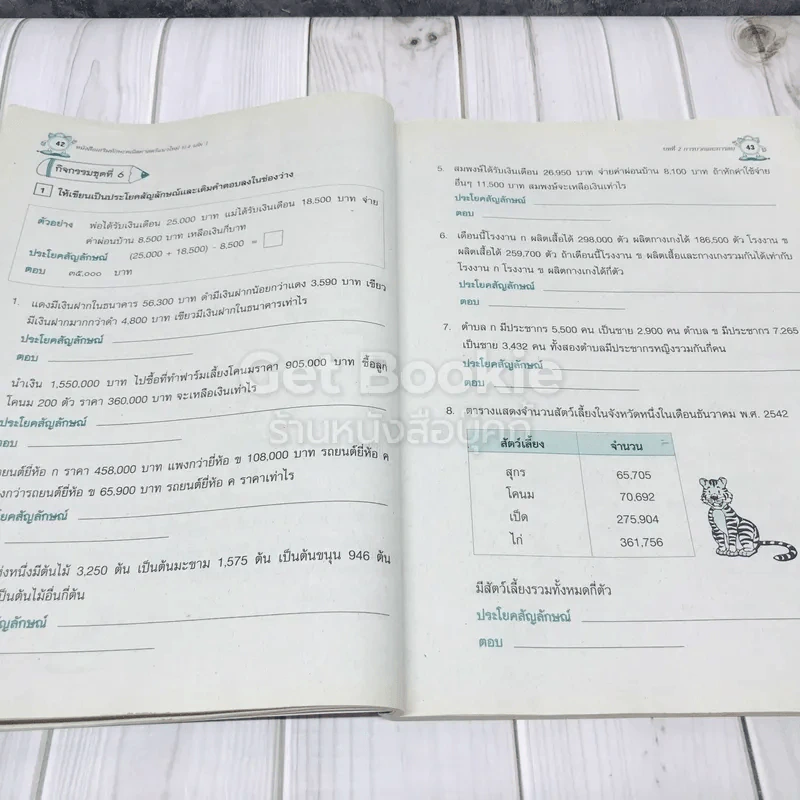 42
กิจกรรมชุดที่ 6
1 ให้เขียนเป็นประโยคสัญลักษณ์และเติมคำตอบลงในช่องว่าง
ตัวอย่าง พ่อได้รับเงินเดือน 25,000 บาท แม่ได้รับเงินเดือน 18,500 บาท จ่าย
ค่าผ่อนบ้าน 8,500 บาท เหลือเงินกี่บาท
ประโยคสัญลักษณ์ (25,000 + 18,500) - 8,500 =
ตอบ ๓๕,๐๐๐ บาท
1. แดงมีเงินฝากในธนาคาร 56,300 บาท ดำมีเงินฝากน้อยกว่าแดง 3,590 บาท เขียว
มีเงินฝากมากกว่าดำ 4,800 บาท เขียวมีเงินฝากในธนาคารเท่าไร
ประโยคสัญลักษณ์
ตอบ
นำเงิน 1,550,000 บาท ไปซื้อที่ทำฟาร์มเลี้ยงโคนมราคา 905,000 บาท ซื้อลูก
โคนม 200 ตัว ราคา 360,000 บาท จะเหลือเงินเท่าไร
ประโยคสัญลักษณ์
ตอบ
ยนต์ยี่ห้อ ก ราคา 458,000 บาท แพงกว่ายี่ห้อ ข 108,000 บาท รถยนต์ยี่ห้อ ค
งกว่ารถยนต์ยี่ห้อ ข 65,900 บาท รถยนต์ยี่ห้อ ค ราคาเท่าไร
โยคสัญลักษณ์
งหนึ่งมีต้นไม้ 3,250 ต้น เป็นต้นมะขาม 1,575 ต้น เป็นต้นขนุน 946 ต้น
ป็นต้นไม้อื่นกี่ต้น
สัญลักษณ์
บทที่ 2 การบวกและการลบ 43
5. สมพงษ์ได้รับเงินเดือน 26,950 บาท จ่ายค่าผ่อนบ้าน 8,100 บาท ถ้าหักค่าใช้จ่าย
อื่นๆ 11,500 บาท สมพงษ์จะเหลือเงินเท่าไร
ประโยคสัญลักษณ์
ตอบ
6. เดือนนี้โรงงาน ก ผลิตเสื้อได้ 298,000 ตัว ผลิตกางเกงได้ 186,500 ตัว โรงงาน ข
ผลิตเสื้อได้ 259,700 ตัว ถ้าเดือนนี้โรงงาน ข ผลิตเสื้อและกางเกงรวมกันได้เท่ากับ
โรงงาน ก โรงงาน ข ผลิตกางเกงได้กี่ตัว
ประโยคสัญลักษณ์
ตอบ
7. ตำบล ก มีประชากร 5,500 คน เป็นชาย 2,900 คน ตำบล ข มีประชากร 7,265
เป็นชาย 3,432 คน ทั้งสองตำบลมีประชากรหญิงรวมกันกี่คน
ประโยคสัญลักษณ์
ตอบ
8. ตารางแสดงจำนวนสัตว์เลี้ยงในจังหวัดหนึ่งในเดือนธันวาคม พ.ศ. 2542
สัตว์เลี้ยง จำนวน
สุกร 65,705
โคนม 70,692
เป็ด 275,904
ไก่ 361,756
มีสัตว์เลี้ยงรวมทั้งหมดกี่ตัว
ประโยคสัญลักษณ์
ตอบ
Get Bookie
ร้านหนังสือบุคกี้